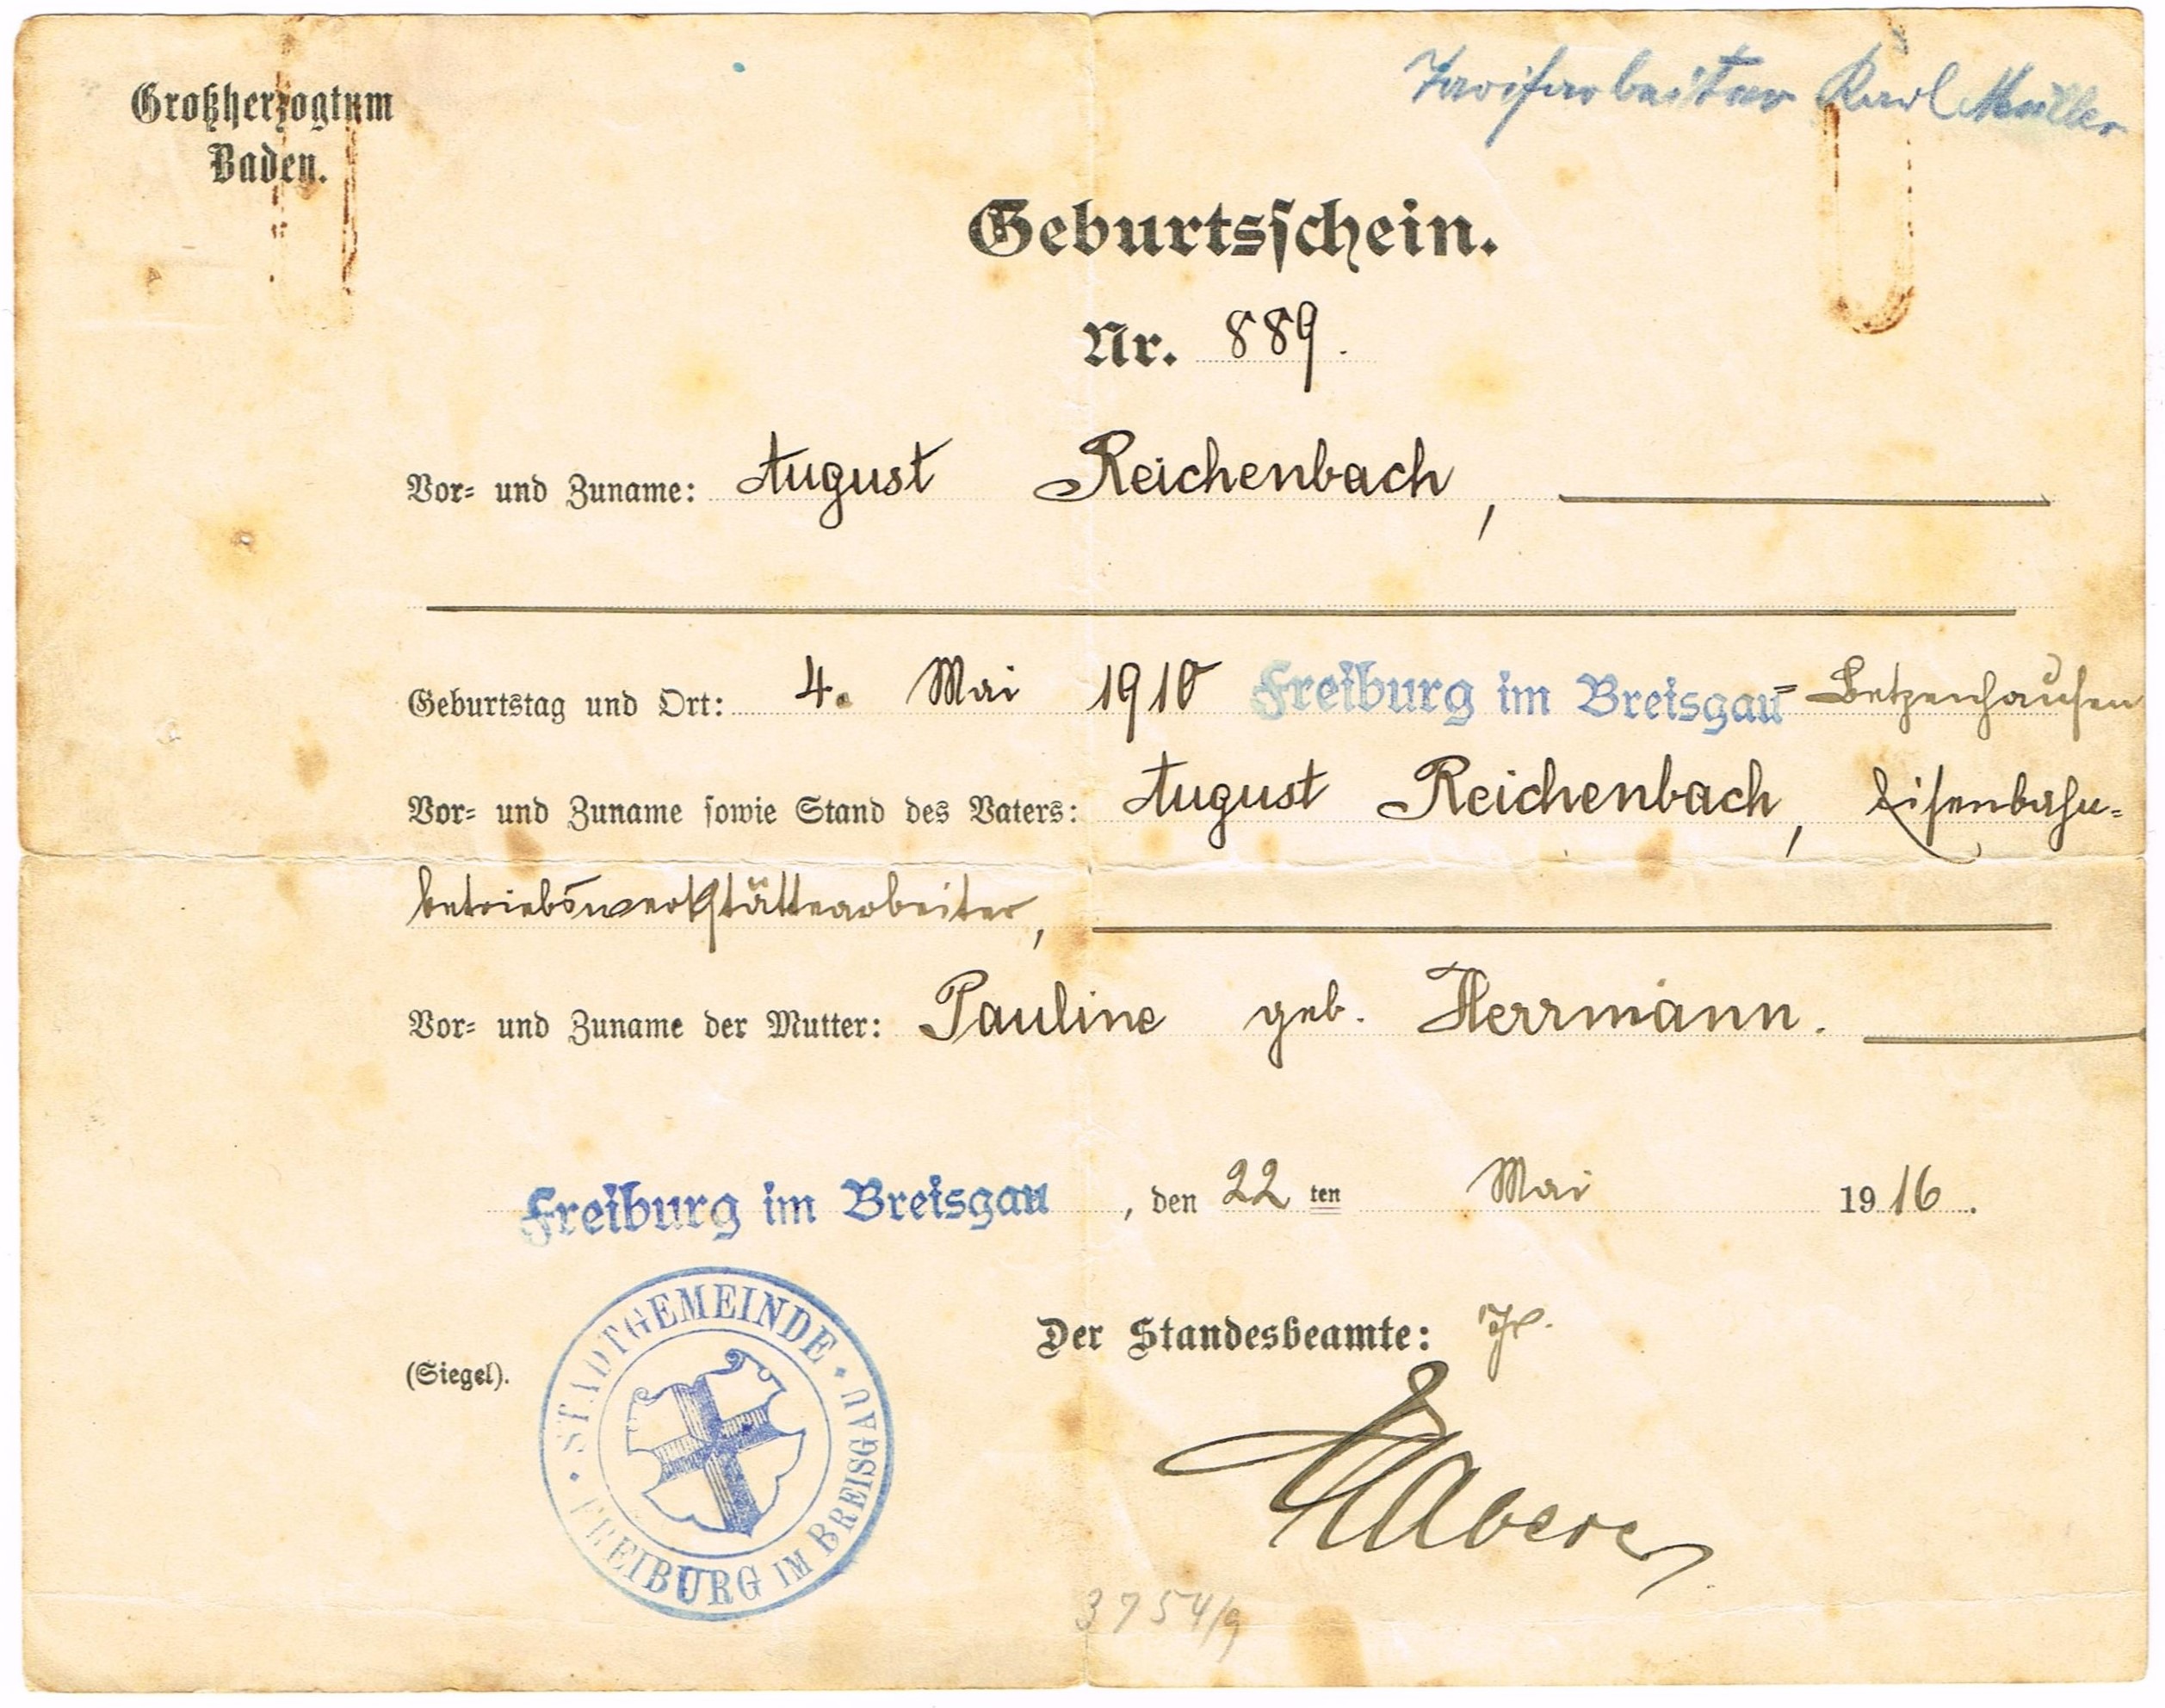 Großherzogtum
Baden.
Tarifarbeiter Karl Müller
Geburtsschein.
Nr. 889.
Vor- und Zuname: August Reichenbach,
Geburtstag und Ort: 4. Mai 1910 Freiburg im Breisgau-Betzenhausen
Vor- und Zuname sowie Stand des Vaters: August Reichenbach, Eisenbahn-
betriebswerkstättearbeiter,
Vor- und Zuname der Mutter: Pauline geb. Herrmann.
Freiburg im Breisgau, den 22 ten Mai 1916.
Der Standesbeamte:
(Siegel).
STADTGEMEINDE
FREIBURG IM BREISGAU
3754/9